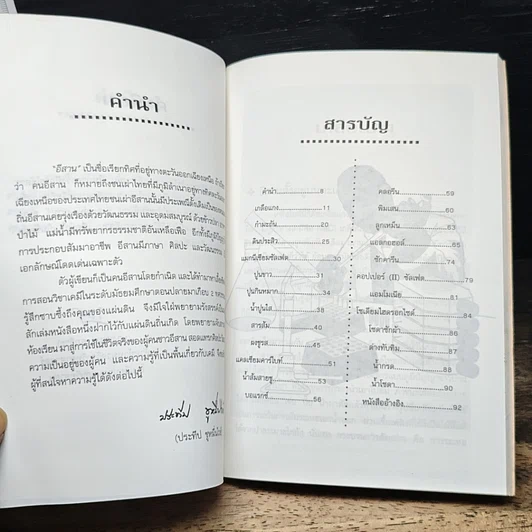 คำนำ
"อีสาน" เป็นชื่อเรียกทิศที่อยู่ทางตะวันออกเฉียงเหนือ
ว่า คนอีสาน ก็หมายถึงชนเผ่าไทยที่มีภูมิลำเนาอยู่ทางทิศตะวัน
เฉียงเหนือของประเทศไทยชนเผ่าอีสานนั้นมีประเพณีดั้งเดิม
ถิ่นอีสานเคยรุ่งเรืองด้วยวัฒนธรรม และอุดมสมบูรณ์ ด้วยข้าวปลา
ป่าไม้ แม่น้ำมีทรัพยากรธรรมชาติอันเหลือเฟือ อีกทั้งมีภูมิ
การประกอบสัมมาอาชีพ อีสานมีภาษา ศิลปะ และวัฒนธรรม
เอกลักษณ์โดดเด่นเฉพาะตัว
ตัวผู้เขียนก็เป็นคนอีสานโดยกำเนิด และได้ทำมาหา
การสอนวิชาเคมีในระดับมัธยมศึกษาตอนปลายมาเกือบ 2 ทศวรรษ
รู้สึกซาบซึ้งถึงคุณของแผ่นดิน จึงมีใจใฝ่พยายามรังสรรค์
สักเล่มหนังสือหนึ่งฝากไว้กับแผ่นดินถิ่นเกิด โดยพยายาม
ห้องเรียน มาสู่การใช้ในชีวิตจริงของผู้คนชาวอีสาน สอดแทรก
ความเป็นอยู่ของผู้คน และความรู้ที่เป็นพื้นเกี่ยวกับเคมี
ผู้ที่สนใจหาความรู้ได้ดังต่อไปนี้
ประทีป
(ประทีป
สารบัญ
คำนำ 8
เกลือแกง 11
กำมะถัน 17
ดินประสิว 21
แมกนีเซียมซัลเฟต 30
ปูนขาว 31
ปูนกินหมาก 31
น้ำปูนใส 34
สารส้ม 41
ผงชูรส 44
แคลเซียมคาร์ไบท์ 47
น้ำส้มสายชู 53
บอแรกซ์ 56
คลอรีน 59
พิมเสน 60
ลูกเหม็น 63
แอลกอฮอล์ 66
ขัณฑสกร
คอปเปอร์ (II) ซัลเฟต 79
แอมโมเนีย
โซเดียมไฮดรอกไซด์
โซดาซักผ้า
ด่างทับทิม 88
น้ำกรด 88
น้ำโซดา 90
หนังสืออ้างอิง 92